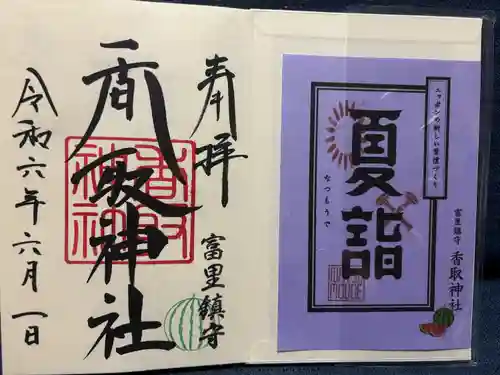 奉拝
富里鎮守
香取神社
令和六年六月一日
香取神社
ニッポンの新しい習慣づくり
夏詣
なつもうで
富里鎮守・香取神社